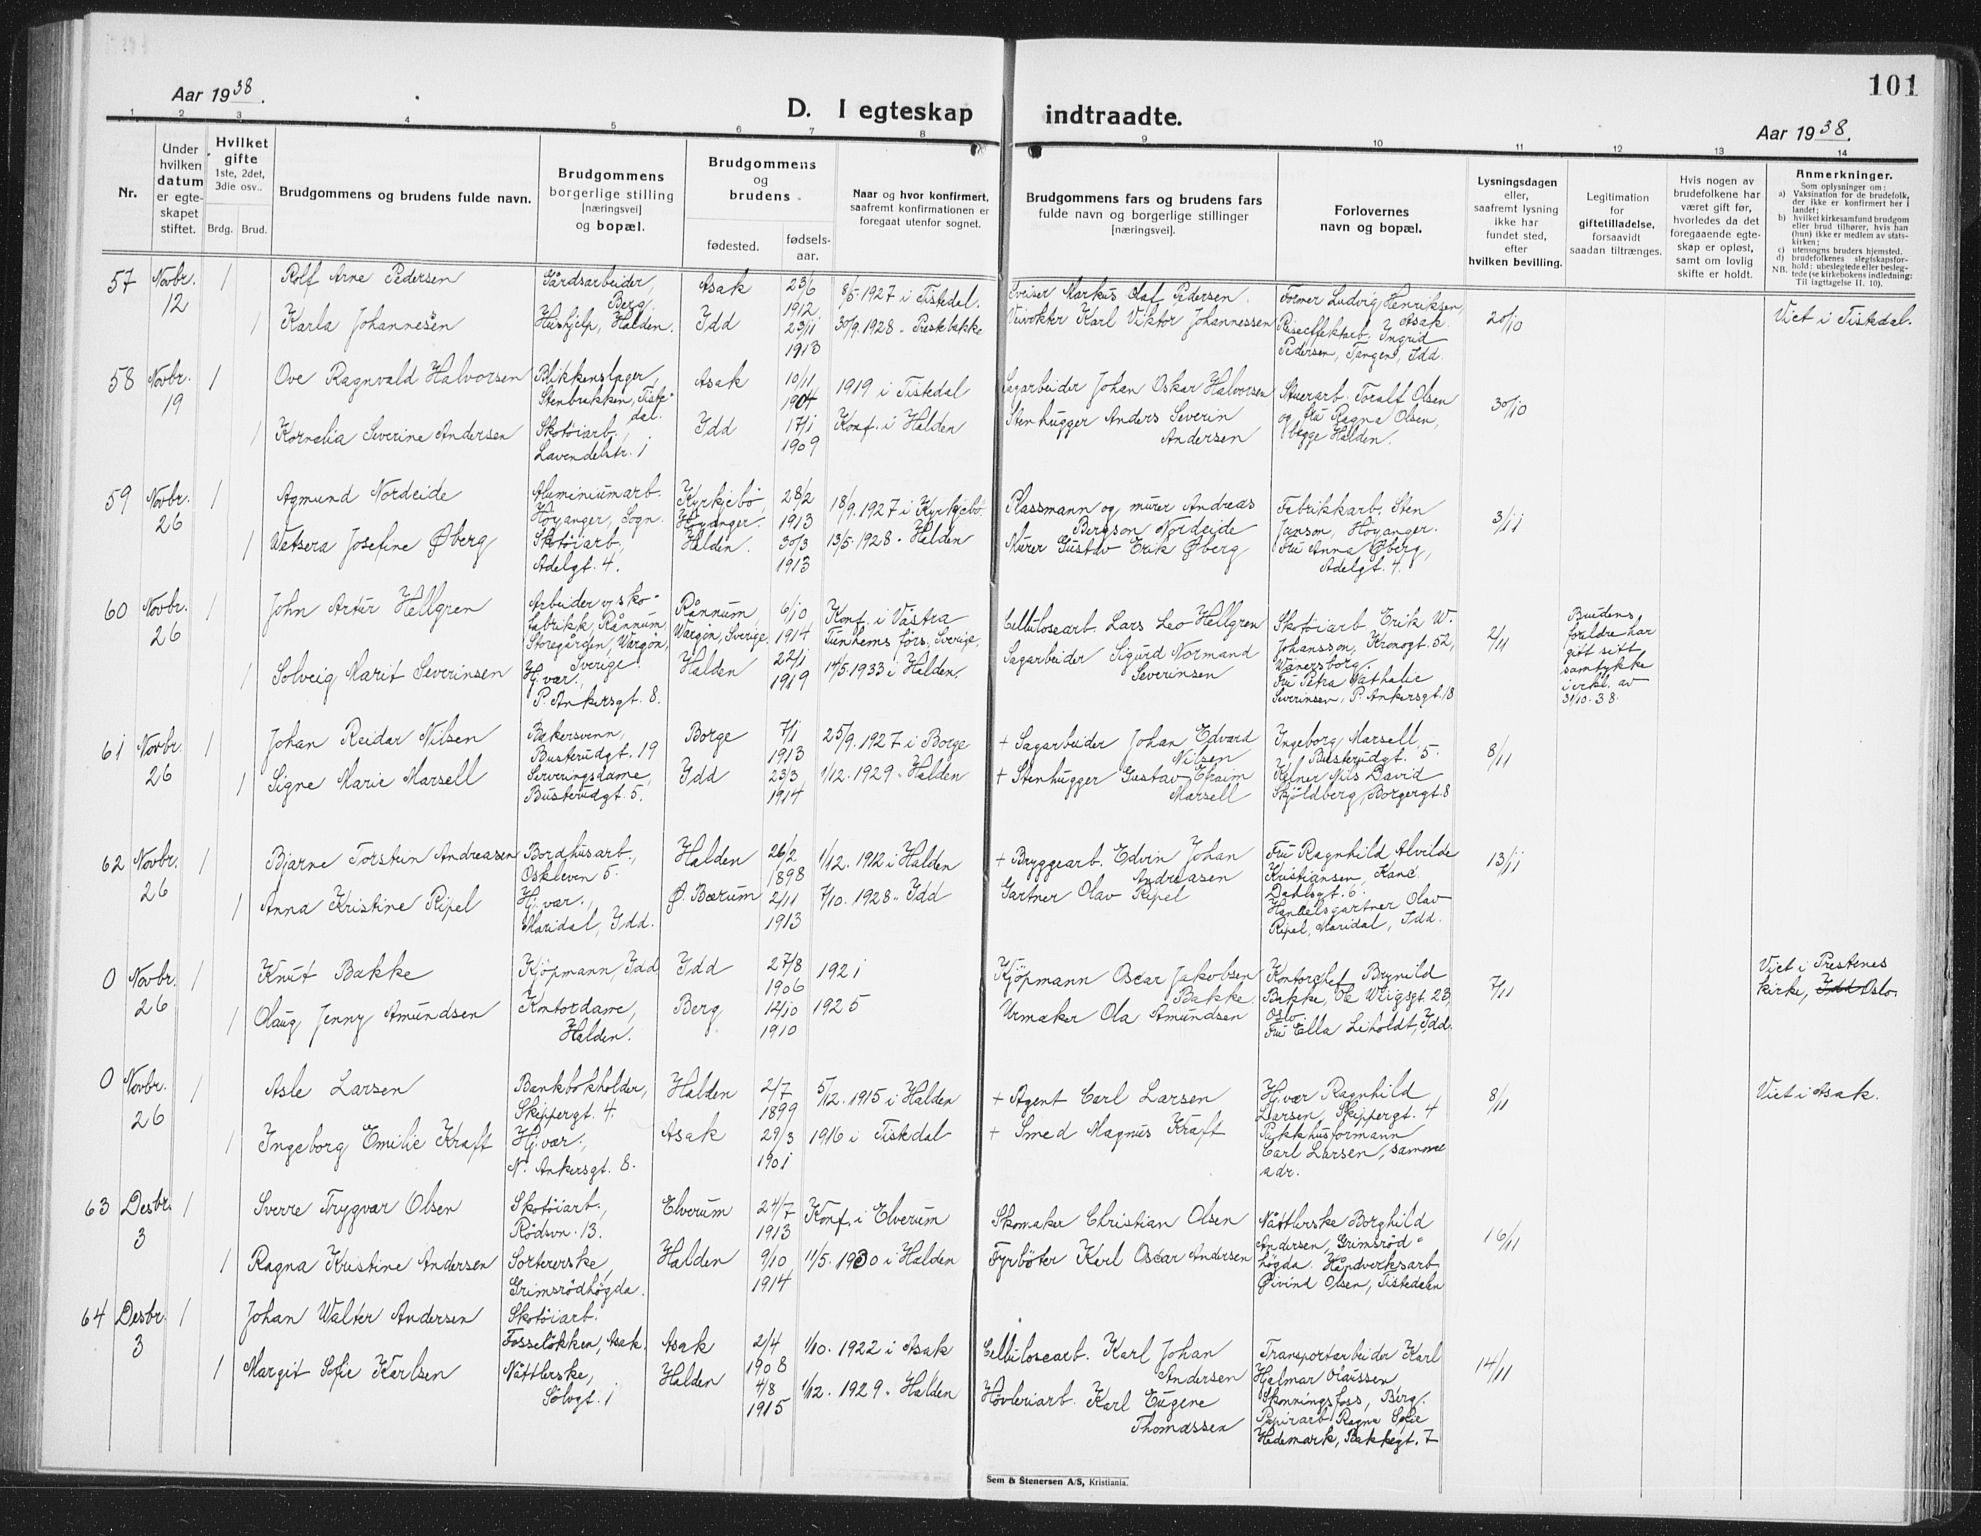 101
Aar 1938.
D. I egteskap indtraadte.
Aar 1938.
1 2 3 4 5 6 7 8 9 10 11 12 13 14
Nr.
Under
hvilken
datum
er egte-
skapet
stiftet.
Hvilket
gifte
1ste, 2det,
3die osv..
Brdg. Brud.
Brudgommens og brudens fulde navn.
Brudgommens
borgerlige stilling
[næringsvei]
og bopæl.
Brudgommens
og
brudens.
fødested.
fødsels-
aar.
Naar og hvor konfirmert,
saafremt konfirmationen er
foregaat utenfor sognet.
Brudgommens fars og brudens fars
fulde navn og borgerlige stillinger
[næringsvei].
Forlovernes
navn og bopæl.
Lysningsdagen
eller,
saafremt lysning
ikke har
fundet sted,
efter
hvilken bevilling.
Legitimation
for
giftetilladelse,
forsaavidt
saadan tiltrænges.
Hvis nogen av
brudefolkene har
været gift før,
hvorledes da det
foregaaende egte-
skap er opløst,
samt om lovlig
skifte er holdt.
Anmerkninger.
Som oplysninger om:
a) Vaksination for de brudefolk,
der ikke er konfirmert her i
landet;
b) hvilket kirkesamfund brudgom
eller brud tilhører, hvis han
(hun) ikke er medlem av stats-
kirken;
c) utensogns bruders hjemsted.
d) brudefolkenes slegtskapsfor-
hold: ubeslegtede eller besleg-
NB. tede (se kirkebokens indledning:
Til iagttagelse II. 10).
57 Novbr. 12
1 Rolf Arne Pedersen
Gårdsarbeider,
Berg.
Asak
23/6
1912
8/5 1927 i Tistedal.
Sveiser Markus Olaf Pedersen.
Former Ludvig Henriksen,
Asak.
20/10
Viet i Tistedal.
1 Karla Johannesen
Hushjelp, Halden.
Idd
23/11
1913
30/9. 1928 - Prestebakke
Veivokter Karl Viktor Johannessen
Ingrid
Pedersen, Tangen, Idd.
58 Novbr. 19
1 Ove Ragnvald Halvorsen
Blikkenslager,
Stenbrekken, Tiste-
dal.
Asak
10/11
1904
1919 i Tistedal
Sagarbeider Johan Oskar Halvorsen
Stuerarb. Toralf Olsen
og fru Ragna Olsen,
begge Halden.
30/10
1 Kornelia Severine Andersen
Skotøiarb.,
Lavendelstr. 1
Idd
17/1
1909
Konf. i Halden
Stenhugger Anders Severin
Andersen
59 Novbr. 26
1 Agmund Nordeide
Aluminiumarb.
Høyanger, Sogn.
Kyrkjebø,
Høyanger.
28/2
1913
18/9. 1927 i Kyrkjebø
Plassmann og murer Andreas
Bergson Nordeide
Fabrikkarb. Sten
Jansen, Høyanger.
3/11
1 Wetsera Josefine Øberg
Skotøiarb,
Adelgt. 4.
Halden.
30/3
1913
13/5. 1928 - Halden
Murer Gustav Erik Øberg
Fru Anna Øberg,
Adelgt. 4.
60 Novbr. 26
1 John Artur Hellgren
Arbeider v. sko-
fabrikk, Rånnum,
Storegården, Wargön,
Sverige.
Rånnum,
Wargön, Sverige
6/10
1914
Konf. i Västra
Tunhems förs. Sverige.
Cellulosearb. Lars Leo Hellgren
Skotøiarb Erik W.
Johansson, Kronogt. 52,
Wänersborg.
2/11
Brudens
foreldre har
gitt sitt
samtykke
i erkl. av
31/10. 38.
1 Solveig Marit Severinsen
Hj. vær.,
P. Ankersgt. 8.
Halden
22/1
1919
14/5. 1933 i Halden.
Sagarbeider Sigurd Normand
Severinsen
Fru Petra Nathalie
Severinsen, P. Ankersgt. 18
61 Novbr. 26
1 Johan Reidar Nilsen
Bakersvenn,
Busterudgt. 19
Borge
7/1
1913
25/9. 1927 i Borge
+ Sagarbeider Johan Edvard
Nilsen
Ingeborg Marsell,
Busterudgt. 5.
8/11
1 Signe Marie Marsell
Serveringsdame,
Busterudgt. 5.
Idd
23/3
1914
1/12. 1929 - Halden
+ Stenhugger Gustav Efraim
Marsell
Kelner Nils David
Skjöldberg, Borgergt. 8
62 Novbr. 26
1 Bjarne Torstein Andreasen
Bordhusarb.,
Oskleven 5.
Halden
26/2
1898
1/12. 1912 i Halden
+ Bryggearb. Edvin Johan
Andreasen
Fru Ragnhild Alvilde
Kristiansen, Kanc.
Dahlsgt. 6.
13/11
1 Anna Kristine Ripel
Hj. vær.,
Maridal, Idd.
Ø. Bærum
2/11
1913
7/10. 1928 - Idd
Gartner Olav Ripel
Handelsgartner Olav
Ripel, Maridal, Idd.
0 Novbr. 26
1 Knut Bakke
Kjöpmann, Idd
Idd
27/8
1906
1921
Kjöpmann Oscar Jakobsen
Bakke.
Kontorchef Brynild
Bakke, Oslo.
7/11
Viet i Prestenes
kirke, Idd Oslo.
1 Olaug Jenny Amundsen
Kontordame,
Halden.
Berg
14/10
1910
1925
Urmaker Ola Amundsen
Fru Ella Liholdt, Idd.
0 Novbr. 26
1 Asle Larsen
Bankbokholder,
Skippergt. 4.
Halden
2/7
1899
5/12. 1915 i Halden
+ Agent Carl Larsen
Hj. vær Ragnhild
Larsen, Skippergt. 4
8/11
Viet i Asak.
1 Ingeborg Emilie Kraft
Hj. vær.,
N. Ankersgt. 8.
Asak
29/3
1901
1916 i Tistedal
+ Smed Magnus Kraft
Pakkhusformann
Carl Larsen, samme
adr.
63 Desbr. 3
1 Sverre Trygvar Olsen
Skotøiarb.,
Rödsvn. 13.
Elverum
24/7
1913
Konf. i Elverum
Skomaker Christian Olsen
Nåttlerske Borghild
Andersen, Grimsrød-
høgda.
16/11
1 Ragna Kristine Andersen
Sortererske,
Grimsrødhøgda.
Halden
9/10
1914
11/5. 1930 i Halden
Fyrböter Karl Oscar Andersen
Håndverksarb.
Øivind Olsen, Tistedalen
64 Desbr. 3
1 Johan Walter Andersen
Skotøiarb.
Fosseløkken, Asak.
Asak
2/4
1908
1/10. 1922 i Asak
Cellulosearb. Karl Johan
Andersen
Transportarbeider Karl
Hjalmar Olaussen,
Skonningsfoss, Berg.
14/11
1 Margit Sofie Karlsen
Nåttlerske,
Sölvgt. 1
Halden
4/8
1915
1/12. 1929 - Halden
Høvleriarb. Karl Eugene
Thomassen
Papirarb. Ragna Sofie
Hedemark, Bakkegt. 7
Sem & Stenersen A/S, Kristiania.